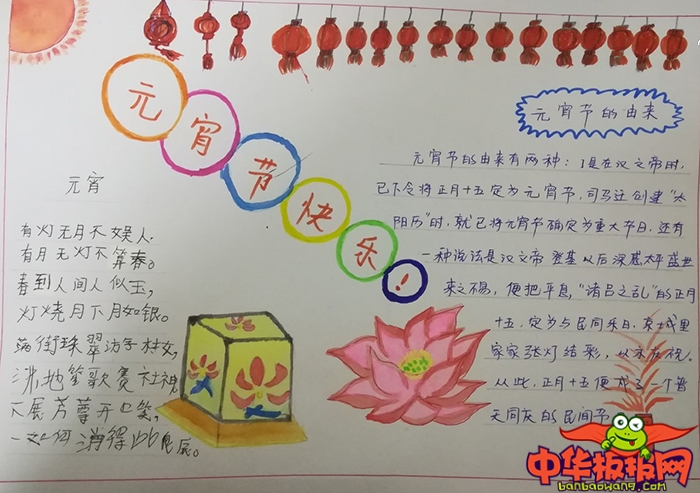 元宵节快乐！
元宵
有灯无月不娱人，
有月无灯不算春。
春到人间人似玉，
灯烧月下月如银。
满街珠翠游村女，
沸地笙歌赛社神
不展芳尊开口笑，
如何消得此良辰。
元宵节的由来
元宵节的由来有两种：1是在汉文帝时，
已下令将正月十五定为元宵节，司马迁创建“太
阳历”时，就已将元宵节确定为重大节日，还有
一种说法是汉文帝登基以后深感太平盛世
来之不易，便把平息“诸吕之乱”的正月
十五，定为与民同乐日，京城里
家家张灯结彩，以示庆祝。
从此，正月十五便成了一个普
天同庆的民间节
中华板报网
banbaowang.com